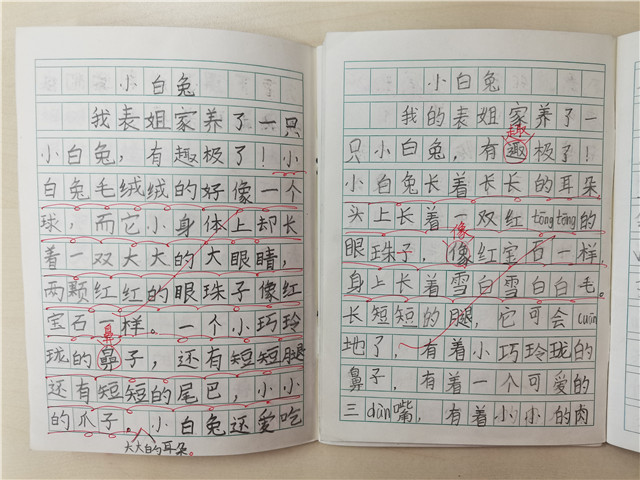 小白兔
我表姐家养了一只
小白兔，有趣极了！小
白兔毛绒绒的好像一个
球，而它小身体上却长
着一双大大的大眼睛，
两颗红红的眼珠子像红
宝石一样。一个小巧玲
鼻
珑的鼻子，还有短短腿
还有短短的尾巴，小小
的爪子。小白兔还爱吃
大大的耳朵。
小白兔
我的表姐家养了一
趣
只小白兔，有趣极了！
小白兔长着长长的耳朵
头上长着一双红tōngtōng的
像
眼珠子，像红宝石一样，
身上长着雪白雪白白毛。
长短短的腿，它可会cuān
地了，有着小巧玲珑的
鼻子，有着一个可爱的
三dàn嘴，有着小小的肉